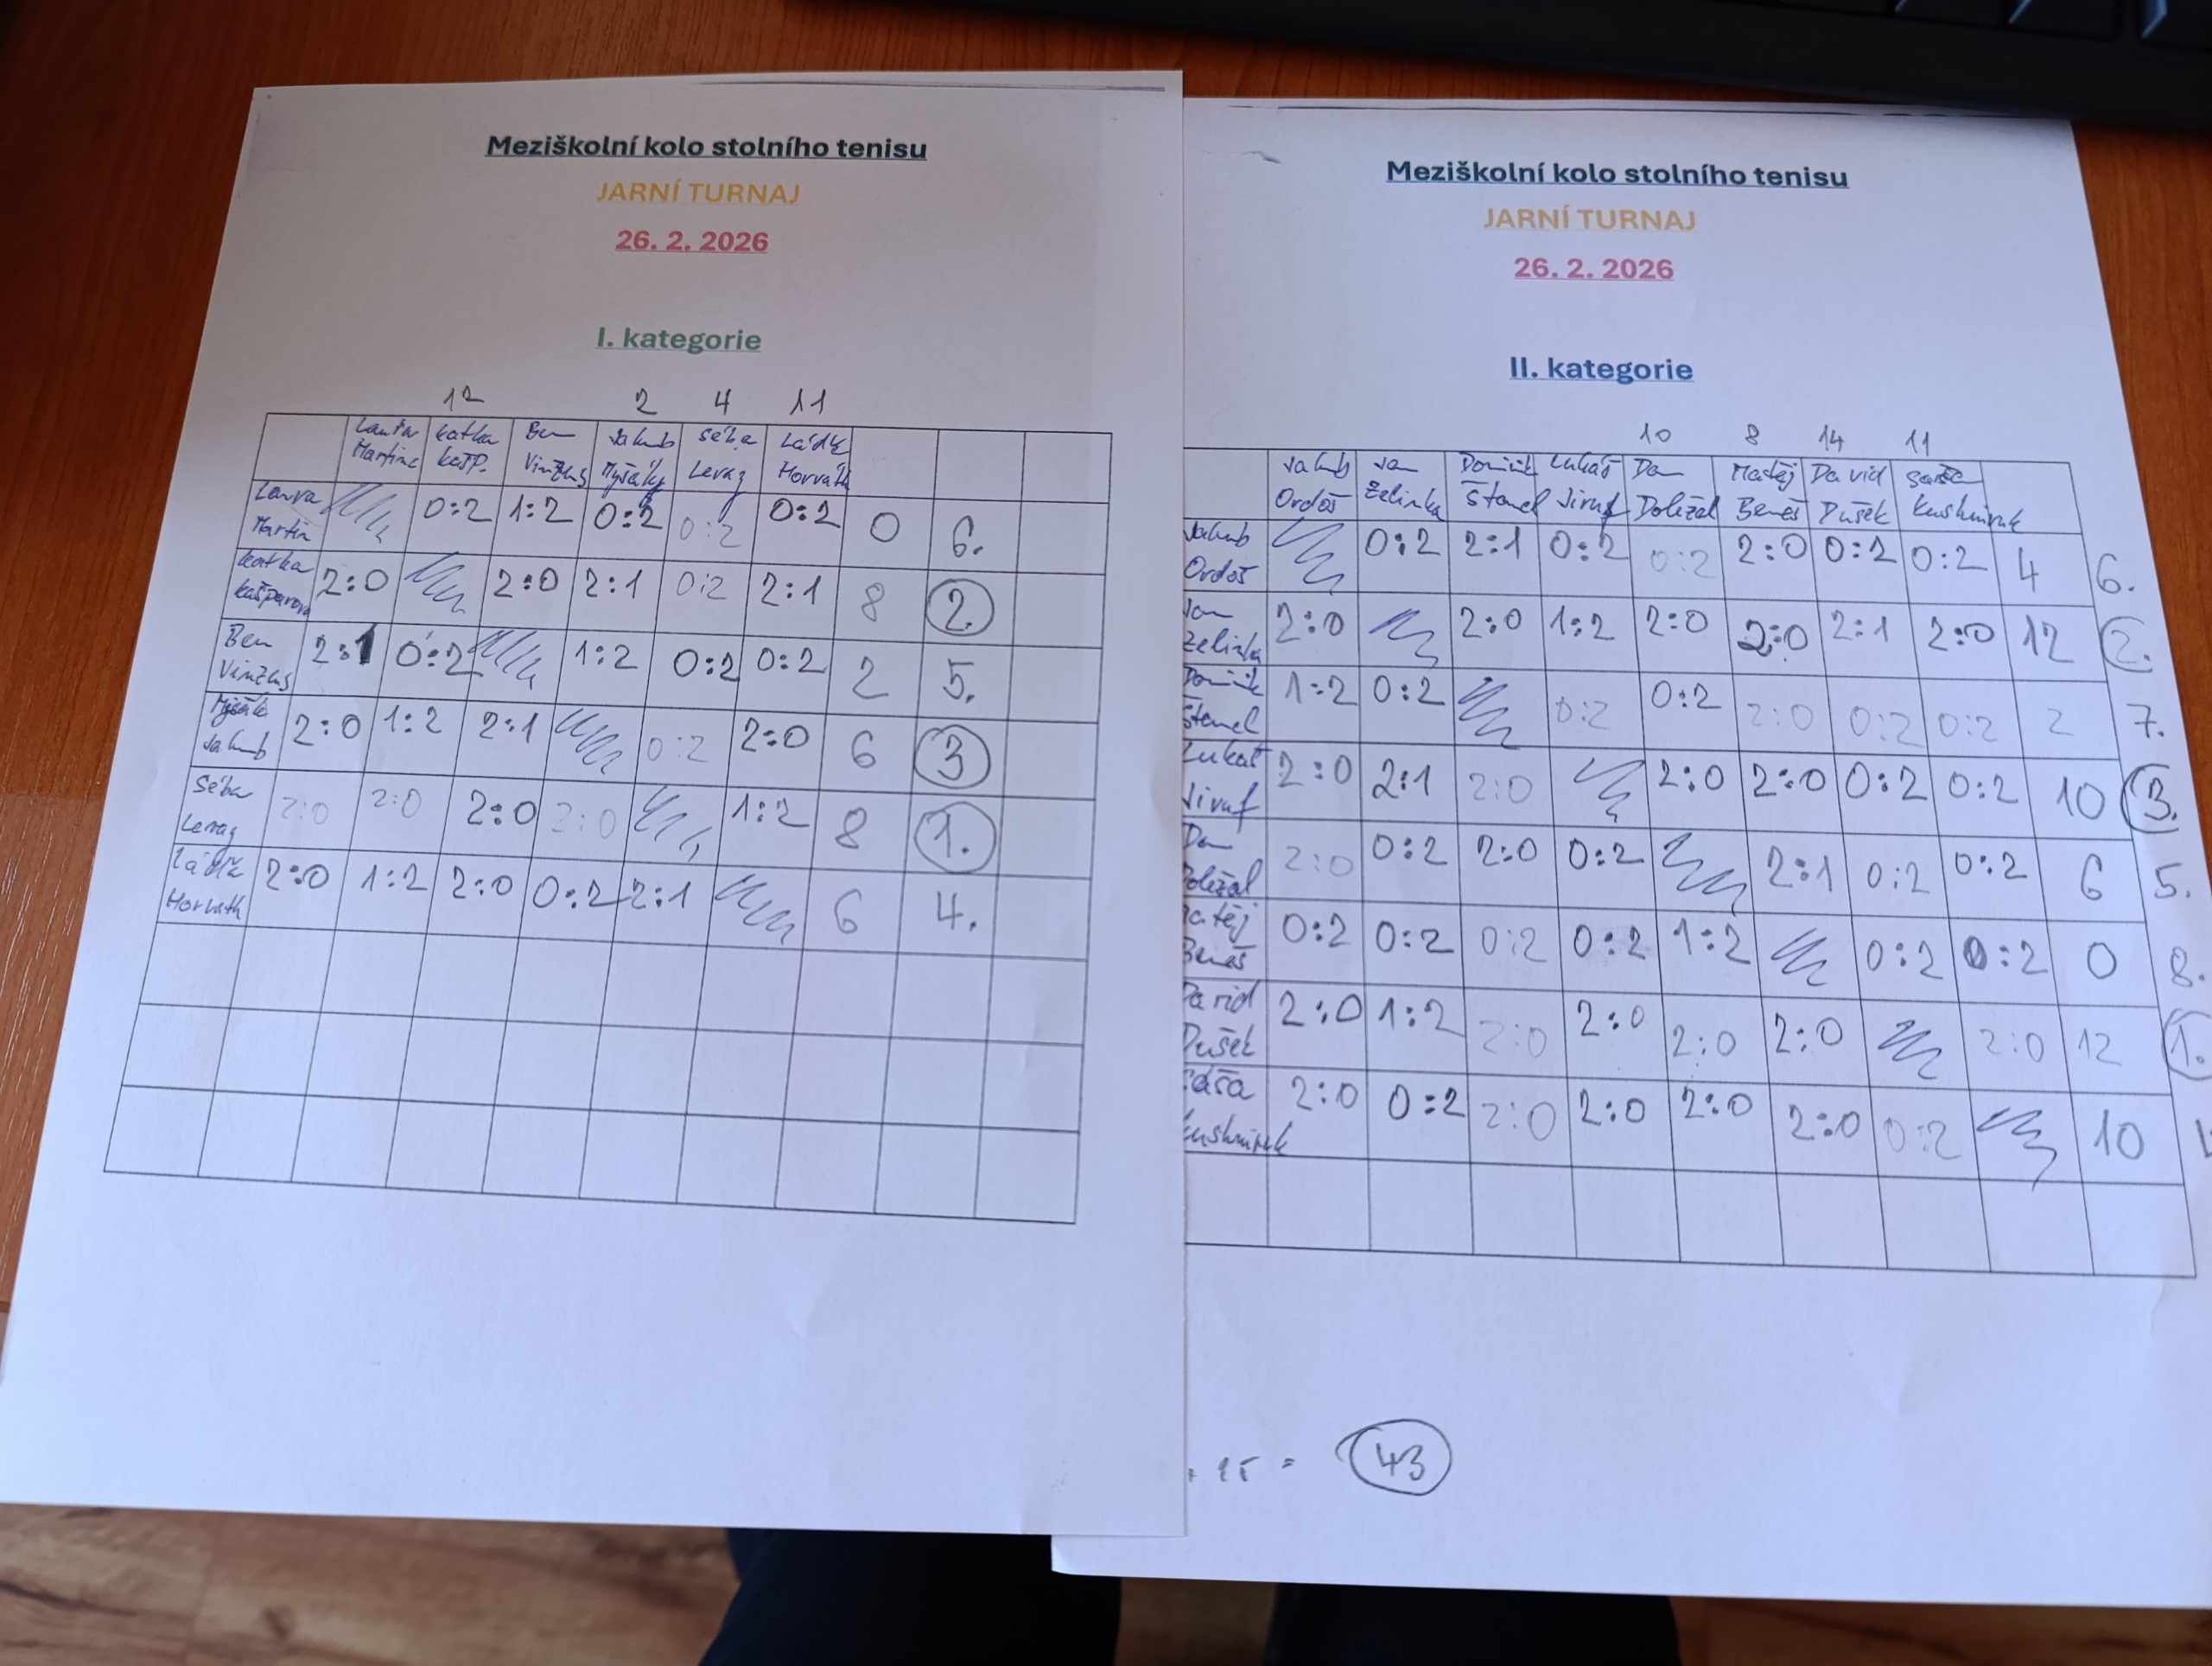 Meziškolní kolo stolního tenisu
JARNÍ TURNAJ
26. 2. 2026
I. kategorie
12 2 4 11
Katka Ben Jakub Séba Láďa
Martin Kašp. Myšák Horváth
Laura Martin 0:2 1:2 0:2 0:2 0:2 0 6.
Katka Kašparová 2:0 2:0 2:1 0:2 2:1 8 2.
Ben 2:1 0:2 1:2 0:2 0:2 2 5.
Myšák Jakub 2:0 1:2 2:1 0:2 2:0 6 3
Séba 2:0 2:0 2:0 2:0 1:2 8 1.
Láďa Horváth 2:0 1:2 2:0 0:2 2:1 6 4.
Meziškolní kolo stolního tenisu
JARNÍ TURNAJ
26. 2. 2026
II. kategorie
10 8 14 11
Jakub Jan Dominik Lukáš Dan Matěj David Sáša
Ordoš Zelinka Štancl Jiruf Doležal Beneš Dušek Kushniruk
Jakub Ordoš 0:2 2:1 0:2 0:2 2:0 0:2 0:2 4 6.
Jan Zelinka 2:0 2:0 1:2 2:0 2:0 2:1 2:0 12 2.
Dominik Štancl 1:2 0:2 0:2 0:2 2:0 0:2 0:2 2 7.
Lukáš Jiruf 2:0 2:1 2:0 2:0 2:0 0:2 0:2 10 3.
Dan Doležal 2:0 0:2 2:0 0:2 2:1 0:2 0:2 6 5.
Beneš 0:2 0:2 0:2 0:2 1:2 0:2 0:2 0 8.
David Dušek 2:0 1:2 2:0 2:0 2:0 2:0 2:0 12 1.
2:0 0:2 2:0 2:0 2:0 2:0 0:2 10
= 43